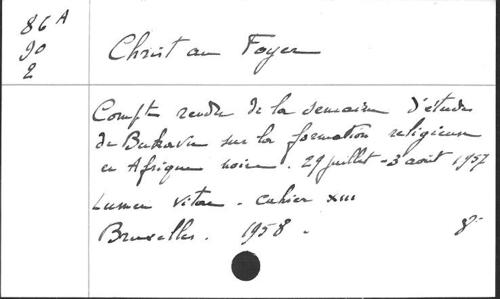 86 A
90
2
Christ au Foyer
Compte rendu de la semaine d'études
de Bukavu sur la formation religieuse
en Afrique noire. 29 juillet - 3 août 1957
Lumen Vitae - cahier XIII
Bruxelles. 1958. 8°